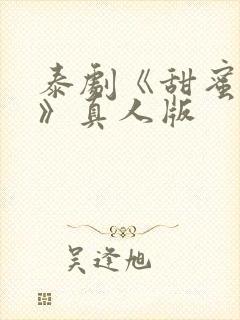 泰劇《甜蜜
》真人版
吴逢旭